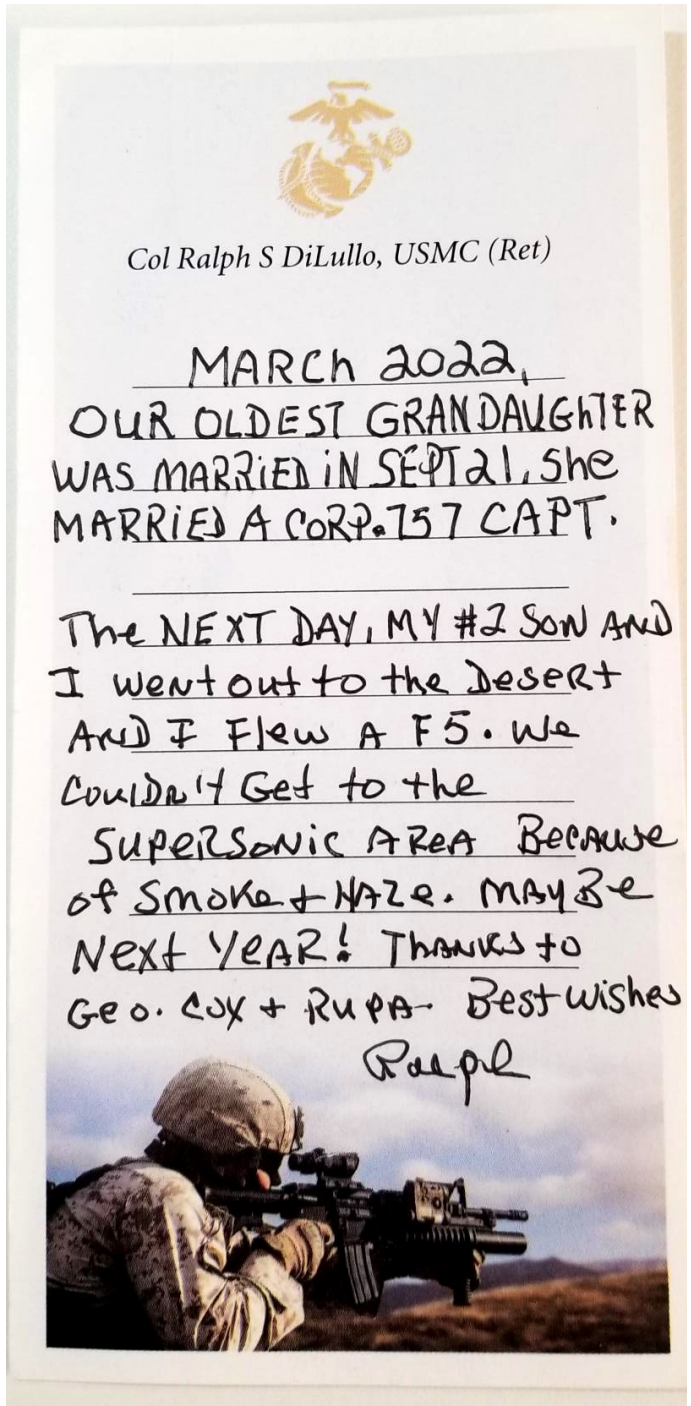 Col Ralph S DiLullo, USMC (Ret)
MARCh 2022,
OUR OLDEST GRANDAUGhTER
WAS MARRiED iN SEPT 21, She
MARRiED A CORP. 757 CAPT.
The NEXT DAY, MY #2 SON AND
I went out to the Desert
AND I Flew A F5. We
COulDn't Get to the
SUPERSONiC AReA BeCAuse
of Smoke + HAZe. MAYBe
Next YeAR! THANKS to
Geo. COX + RUPA- Best Wishes
Ralph